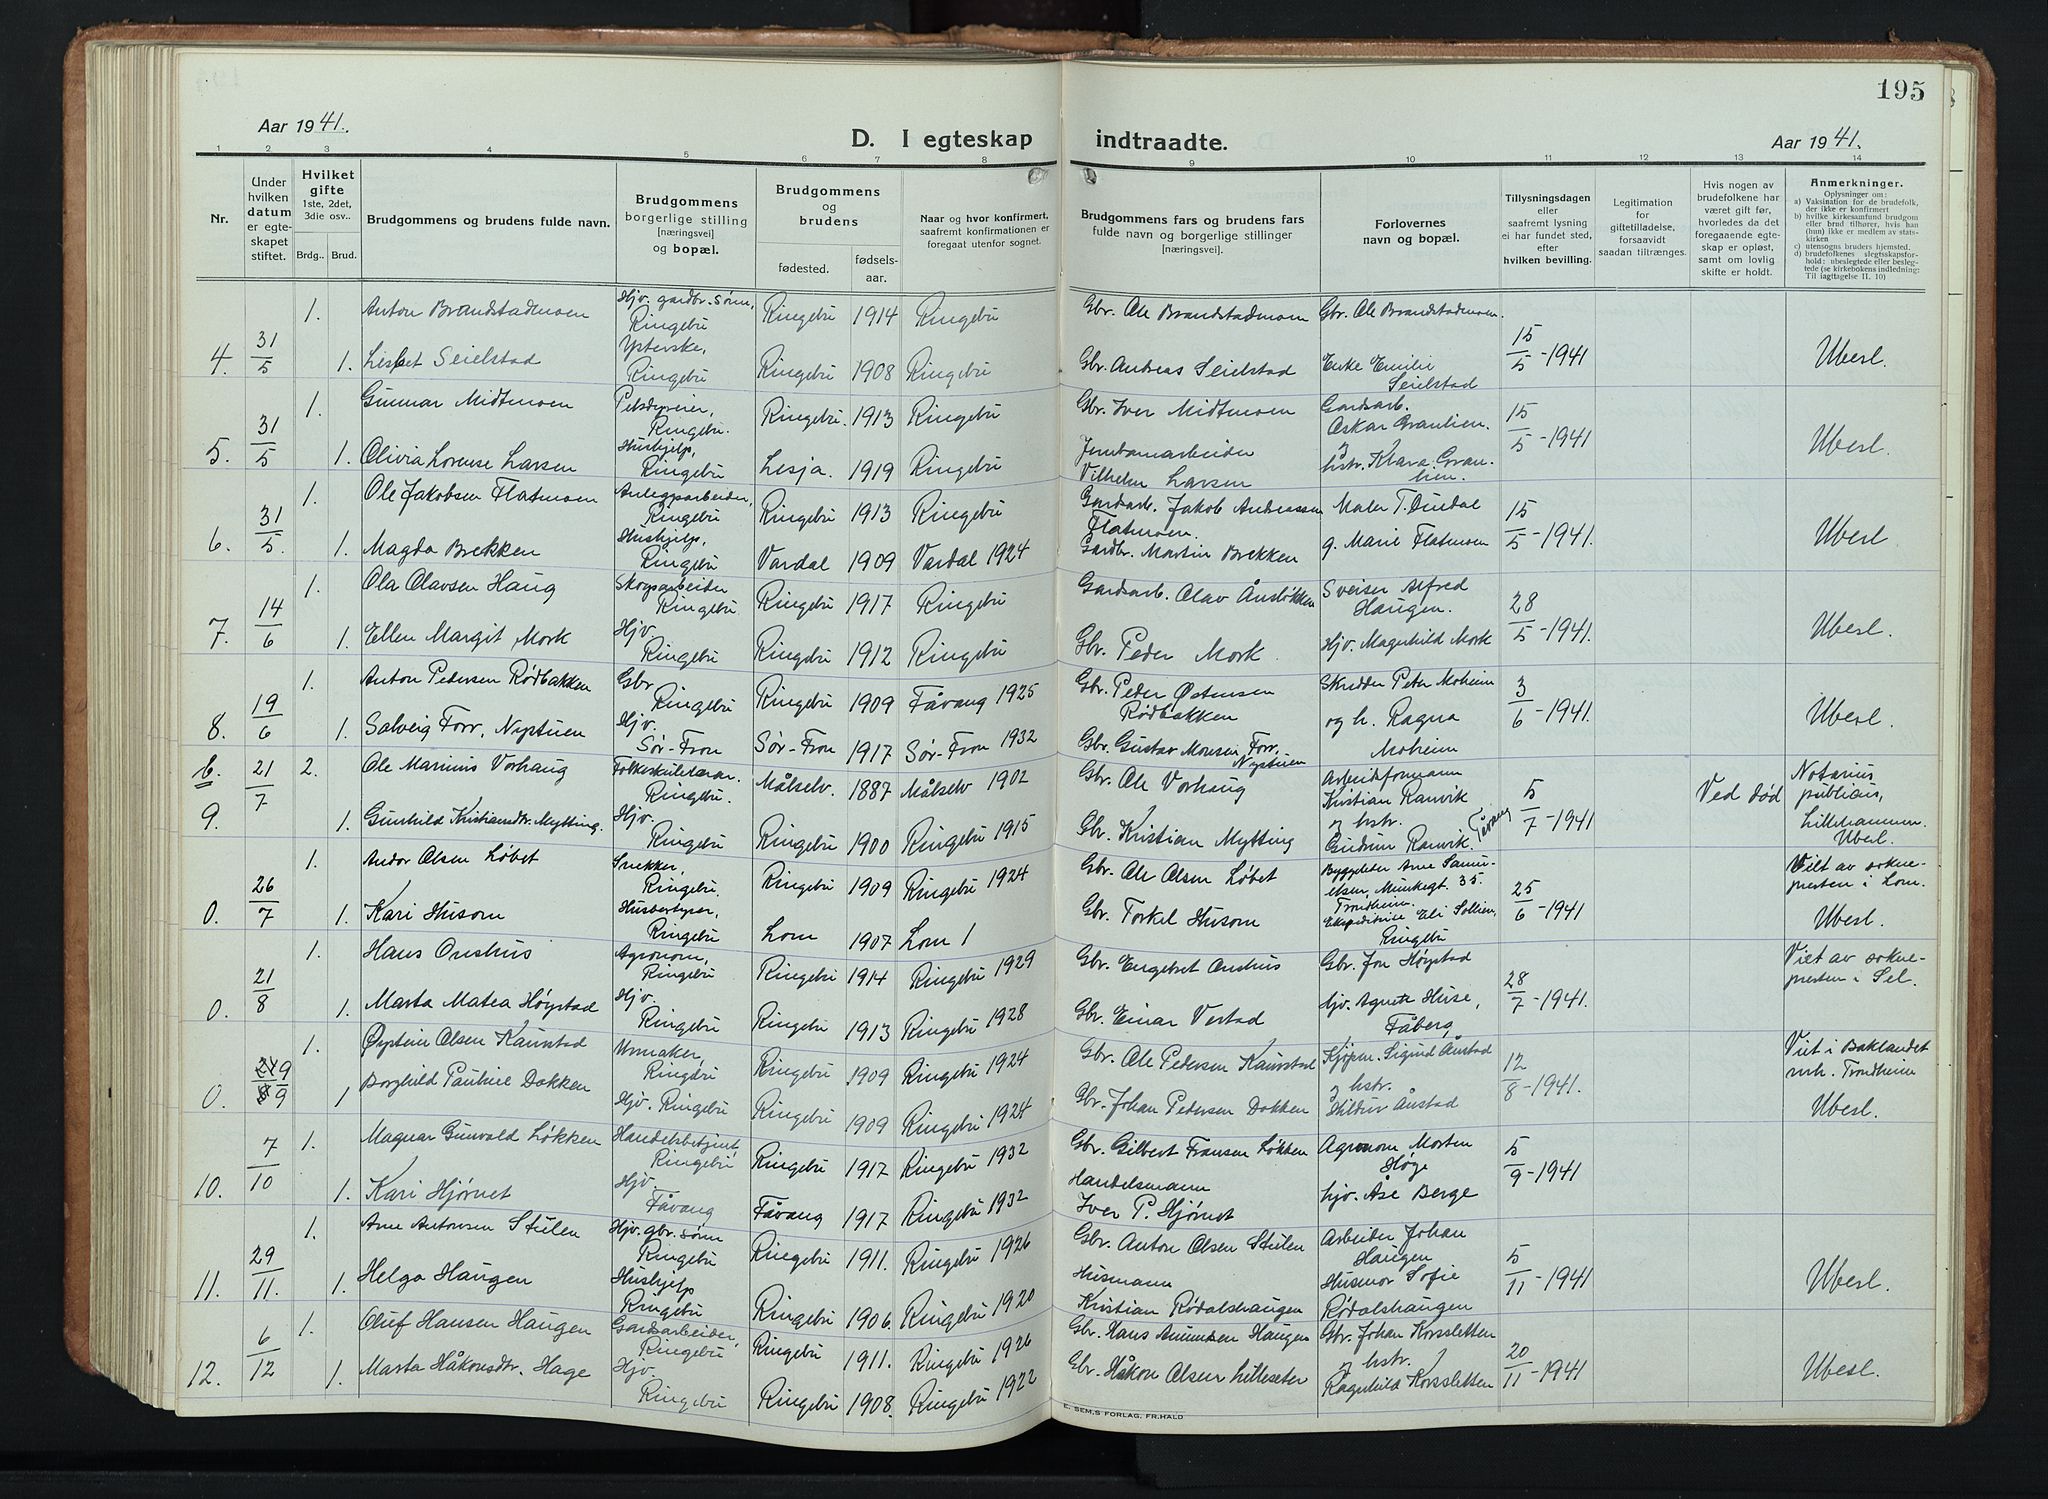 195
Aar 1941.
D. I egteskap indtraadte.
Aar 1941.
1 2 3 4 5 6 7 8 9 10 11 12 13 14
Nr.
Under hvilken datum er egteskapet stiftet.
Hvilket gifte 1ste, 2det, 3die osv..
Brdg.. Brud.
Brudgommens og brudens fulde navn.
Brudgommens borgerlige stilling [næringsvei] og bopæl.
Brudgommens og brudens
fødested.
fødselsaar.
Naar og hvor konfirmert, saafremt konfirmationen er foregaat utenfor sognet.
Brudgommens fars og brudens fars fulde navn og borgerlige stillinger [næringsvei].
Forlovernes navn og bopæl.
Tillysningsdagen eller saafremt lysning ei har fundet sted, efter hvilken bevilling.
Legitimation for giftetilladelse, forsaavidt saadan tiltrænges.
Hvis nogen av brudefolkene har været gift før, hvorledes da det foregaaende egteskap er opløst, samt om lovlig skifte er holdt.
Anmerkninger.
Oplysninger om:
a) Vaksination for de brudefolk, der ikke er konfirmert
b) hvilke kirkesamfund brudgom eller brud tilhører, hvis han (hun) ikke er medlem av statskirken
c) utensogns bruders hjemsted.
d) brudefolkenes slegtsskapsforhold: ubeslegtede eller beslegtede (se kirkebokens indledning: Til iagttagelse II. 10)
1. Anton Brandstadmoen Hjv. gardbr. sønn, Ringebu Ringebu 1914 Ringebu Gbr. Ole Brandstadmoen Gbr. Ole Brandstadmoen
4. 31/5 1. Lisbet Seielstad Ysterske, Ringebu Ringebu 1908 Ringebu Gbr. Andreas Seielstad Enke Emilie Seielstad 15/5-1941 Ubesl.
1. Gunnar Midtmoen Pelsdyreier, Ringebu. Ringebu. 1913 Ringebu Gbr. Iver Midtmoen Gardsarb. Oskar Granlien.
5. 31/5 1. Olivia Lorense Larsen Hushjelp, Ringebu Lesja. 1919 Ringebu Jernbanearbeider Vilhelm Larsen og hstr. Klara Granlien. 15/5-1941 Ubesl.
1. Ole Jakobsen Flatmoen Anleggsarbeider, Ringebu Ringebu 1913 Ringebu Gardsarb. Jakob Andreassen Flatmoen. Maler T. Dundal
6. 31/5. 1. Magda Brekken Hushjelp, Ringebu Vardal 1909 Vardal 1924 Gardbr. Martin Brekken g. Marie Flatmoen 15/5-1941. Ubesl.
1. Ola Olavsen Haug Skogsarbeider Ringebu. Ringebu 1917 Ringebu Gardsarb. Olav Ånsløkken Sveiser Alfred Haugen.
7. 14/6 1. Ellen Margit Mork Hjv. Ringebu Ringebu 1912 Ringebu Gbr. Peder Mork. Hjv. Magnhild Mork 28/5-1941. Ubesl.
1. Anton Pedersen Rødbakken Gbr Ringebu Ringebu 1909 Fåvang 1925 Gbr. Peder Østensen Rødbakken Skredder Peter Moheim
8. 19/6 1. Solveig Forr. Nystuen Hjv. Sør-Fron Sør-Fron 1917 Sør-Fron 1932 Gbr. Gustav Monsen Forr. Nystuen og h. Ragna Moheim 3/6-1941. Ubesl.
b. 21/7 2. Ole Marinus Vorhaug Folkeskulelærar. Ringebu. Målselv. 1887 Målselv 1902 Gbr. Ole Vorhaug Arbeidsformann Kristian Ranvik Ved død Notarius publicus,
9. 1. Gunhild Kristiansdtr. Mytting. Hjv. Ringebu Ringebu 1900 Ringebu 1915 Gbr. Kristian Mytting og hstr. Gudrun Ranvik. Fåvang 5/7-1941 Lillehammer. Ubesl.
1. Andor Olsen Løbet Snekker, Ringebu. Ringebu 1909 Ringebu 1924 Gbr. Ole Olsen Løbet Byggeleder Arne Samuelsen, Munkegt. 35. Trondheim. Viet av soknepresten i Lom.
0. 26/7 1. Kari Husom Husbestyrer, Ringebu Lom 1907 Lom Gbr. Torkel Husom Ekspeditrise Eli Sollien, Ringebu 25/6-1941 Ubesl.
1. Hans Onshus Agronom, Ringebu Ringebu 1914 Ringebu 1929 Gbr. Engebret Onshus Gbr. Jon Høystad Viet av soknepresten i Sel.
0. 21/8 1. Marta Matea Høystad Hjv. Ringebu Ringebu 1913 Ringebu 1928 Gbr. Einar Verstad hjv. Agnete Huse, Fåberg 28/7-1941.
1. Øystein Olsen Kaunstad Urmaker, Ringebu Ringebu 1909 Ringebu 1924 Gbr. Ole Pedersen Kaunstad Kjøpm. Sigurd Ånstad Viet i Baklandet
0. 9/9 1 Borghild Pauline Dokken Hjv. Ringebu Ringebu 1909 Ringebu 1924 Gbr. Johan Pedersen Dokken og hstr. Hildur Ånstad 12/8-1941. Trondheim Ubesl.
1. Magnar Gunvald Løkken Handelsbetjent, Ringebu Ringebu 1917 Ringebu 1932 Gbr. Gilbert Fransen Løkken Agronom Morten Høge
10. 7/10 1. Kari Hjørnet Hjv. Fåvang Fåvang 1917 Ringebu 1932 Handelsmann Iver P. Hjørnet hjv. Åse Berge 5/9-1941
1. Arne Antonsen Stulen Hjv. gbr. sønn Ringebu Ringebu 1911. Ringebu 1926 Gbr. Anton Olsen Stulen Arbeider Johan Haugen
11. 29/11. 1. Helga Haugen Hushjelp Ringebu Ringebu 1906. Ringebu 1920 Husmann Kristian Rødalshaugen Husmor Sofie Rødalshaugen 5/11-1941 Ubesl.
1. Oluf Hansen Haugen Gardsarbeider, Ringebu Ringebu 1911. Ringebu 1926 Gbr. Hans Amundsen Haugen Gbr. Johan Korssletten
12. 6/12 1. Marta Håkonsdtr. Hage Hjv. Ringebu Ringebu 1908. Ringebu 1922 Gbr. Håkon Olsen Lilleseter og hstr. Ragnhild Korssletten 20/11-1941 Ubesl.
E. SEM.S FORLAG, FR.HALD